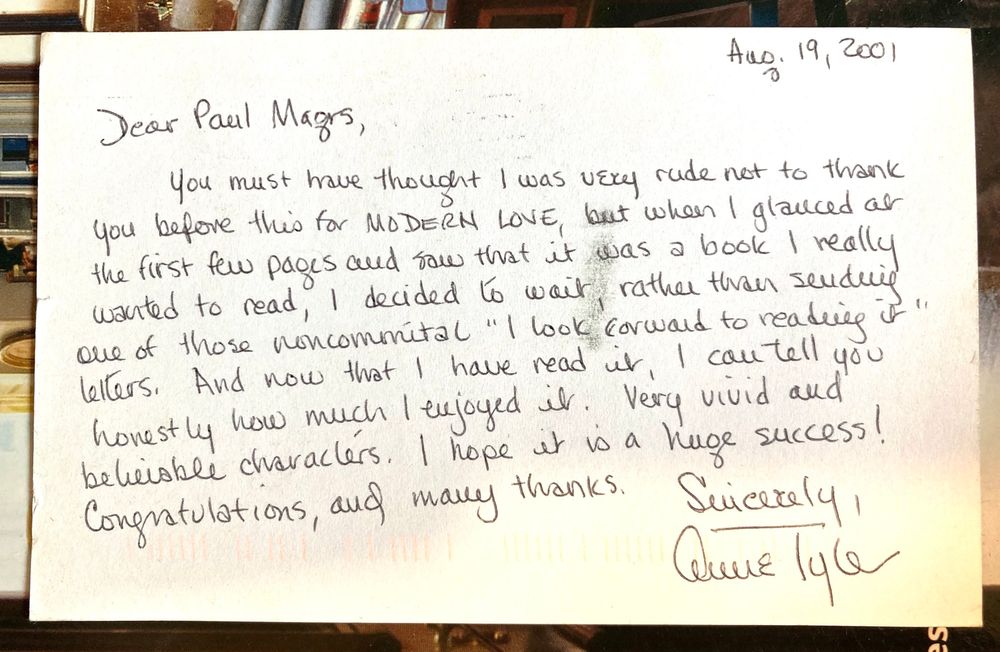 Aug. 19, 2001
Dear Paul Magrs,
You must have thought I was very rude not to thank
you before this for MODERN LOVE, but when I glanced at
the first few pages and saw that it was a book I really
wanted to read, I decided to wait, rather than sending
one of those noncommital "I look forward to reading it"
letters. And now that I have read it, I can tell you
honestly how much I enjoyed it. Very vivid and
believable characters. I hope it is a huge success!
Congratulations, and many thanks.
Sincerely,
Anne Tyler
es